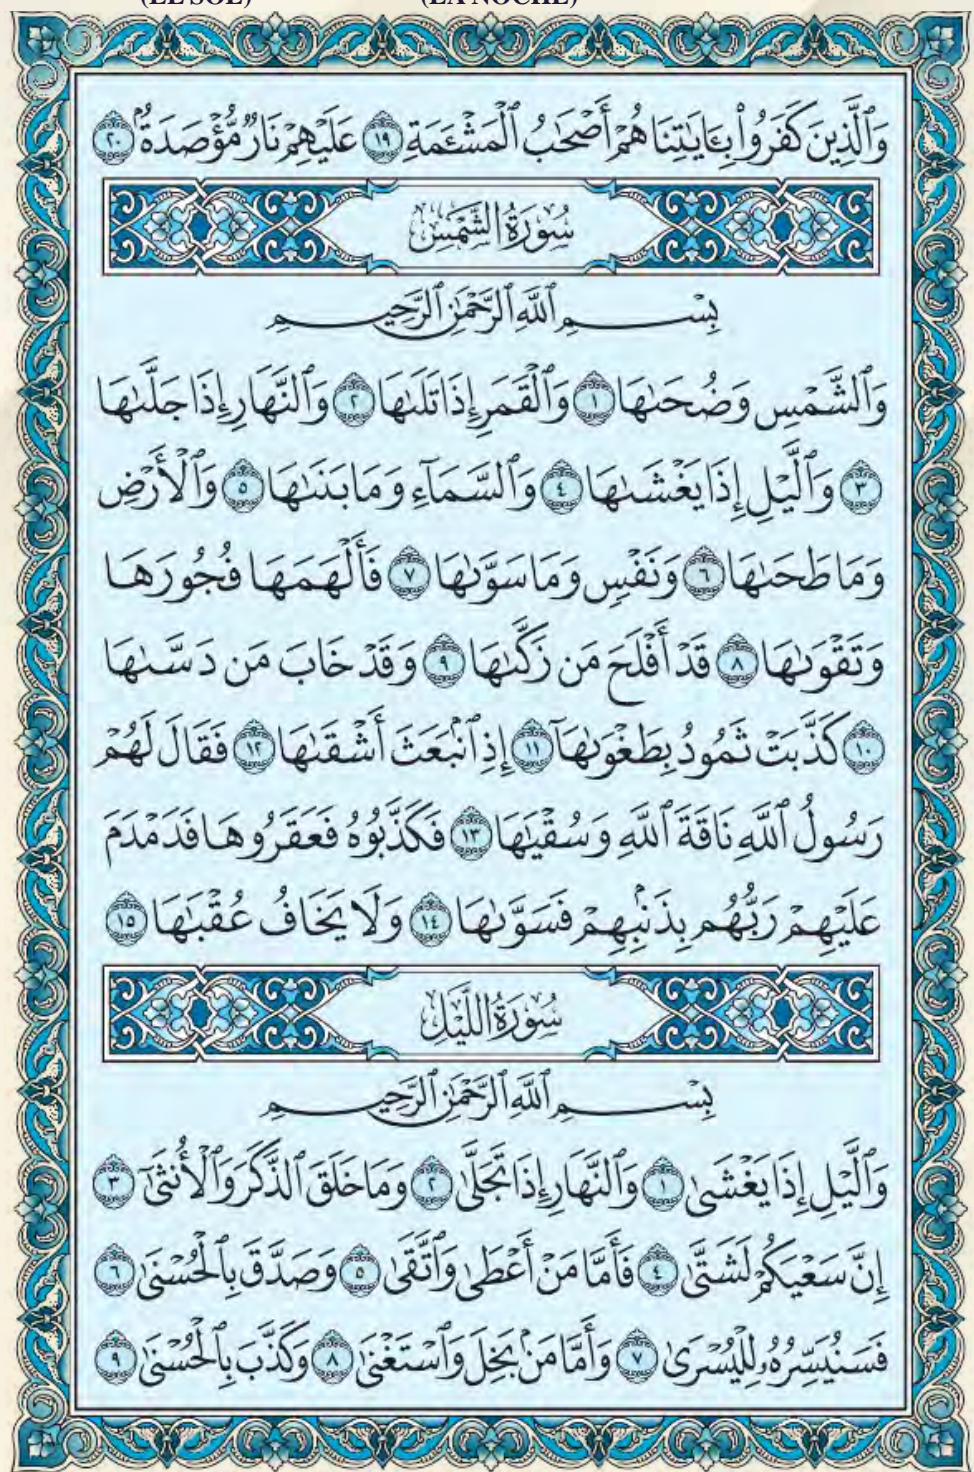 (EL SOL) (LA NOCHE)
وَٱلَّذِينَ كَفَرُواْ بِـَٔايَٰتِنَا هُمۡ أَصۡحَٰبُ ٱلۡمَشۡـَٔمَةِ ١٩ عَلَيۡهِمۡ نَارٞ مُّؤۡصَدَةُۢ ٢٠
سُورَةُ الشَّمۡسِ
بِسۡمِ ٱللَّهِ ٱلرَّحۡمَٰنِ ٱلرَّحِيمِ
وَٱلشَّمۡسِ وَضُحَىٰهَا ١ وَٱلۡقَمَرِ إِذَا تَلَىٰهَا ٢ وَٱلنَّهَارِ إِذَا جَلَّىٰهَا
٣ وَٱلَّيۡلِ إِذَا يَغۡشَىٰهَا ٤ وَٱلسَّمَآءِ وَمَا بَنَىٰهَا ٥ وَٱلۡأَرۡضِ
وَمَا طَحَىٰهَا ٦ وَنَفۡسٖ وَمَا سَوَّىٰهَا ٧ فَأَلۡهَمَهَا فُجُورَهَا
وَتَقۡوَىٰهَا ٨ قَدۡ أَفۡلَحَ مَن زَكَّىٰهَا ٩ وَقَدۡ خَابَ مَن دَسَّىٰهَا
١٠ كَذَّبَتۡ ثَمُودُ بِطَغۡوَىٰهَآ ١١ إِذِ ٱنۢبَعَثَ أَشۡقَىٰهَا ١٢ فَقَالَ لَهُمۡ
رَسُولُ ٱللَّهِ نَاقَةَ ٱللَّهِ وَسُقۡيَٰهَا ١٣ فَكَذَّبُوهُ فَعَقَرُوهَا فَدَمۡدَمَ
عَلَيۡهِمۡ رَبُّهُم بِذَنۢبِهِمۡ فَسَوَّىٰهَا ١٤ وَلَا يَخَافُ عُقۡبَٰهَا ١٥
سُورَةُ اللَّيۡلِ
بِسۡمِ ٱللَّهِ ٱلرَّحۡمَٰنِ ٱلرَّحِيمِ
وَٱلَّيۡلِ إِذَا يَغۡشَىٰ ١ وَٱلنَّهَارِ إِذَا تَجَلَّىٰ ٢ وَمَا خَلَقَ ٱلذَّكَرَ وَٱلۡأُنثَىٰٓ ٣
إِنَّ سَعۡيَكُمۡ لَشَتَّىٰ ٤ فَأَمَّا مَنۡ أَعۡطَىٰ وَٱتَّقَىٰ ٥ وَصَدَّقَ بِٱلۡحُسۡنَىٰ ٦
فَسَنُيَسِّرُهُۥ لِلۡيُسۡرَىٰ ٧ وَأَمَّا مَنۢ بَخِلَ وَٱسۡتَغۡنَىٰ ٨ وَكَذَّبَ بِٱلۡحُسۡنَىٰ ٩